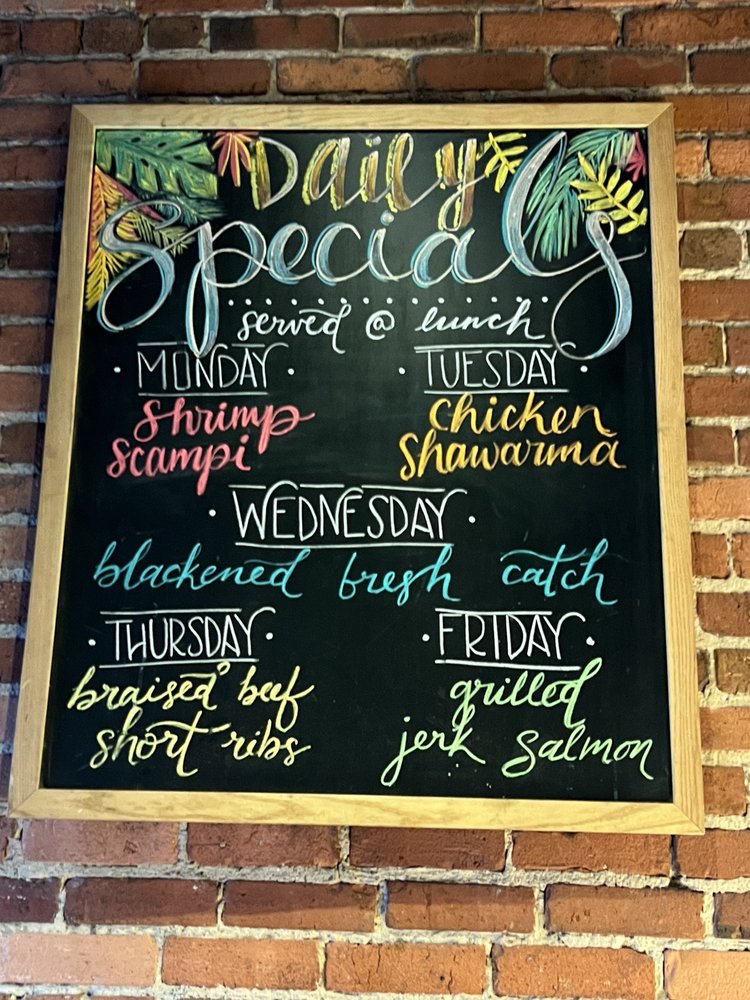 Daily
Specials
served @ lunch
· MONDAY ·
shrimp
scampi
· TUESDAY ·
chicken
shawarma
· WEDNESDAY ·
blackened fresh catch
· THURSDAY ·
braised beef
short ribs
· FRIDAY ·
grilled
jerk salmon